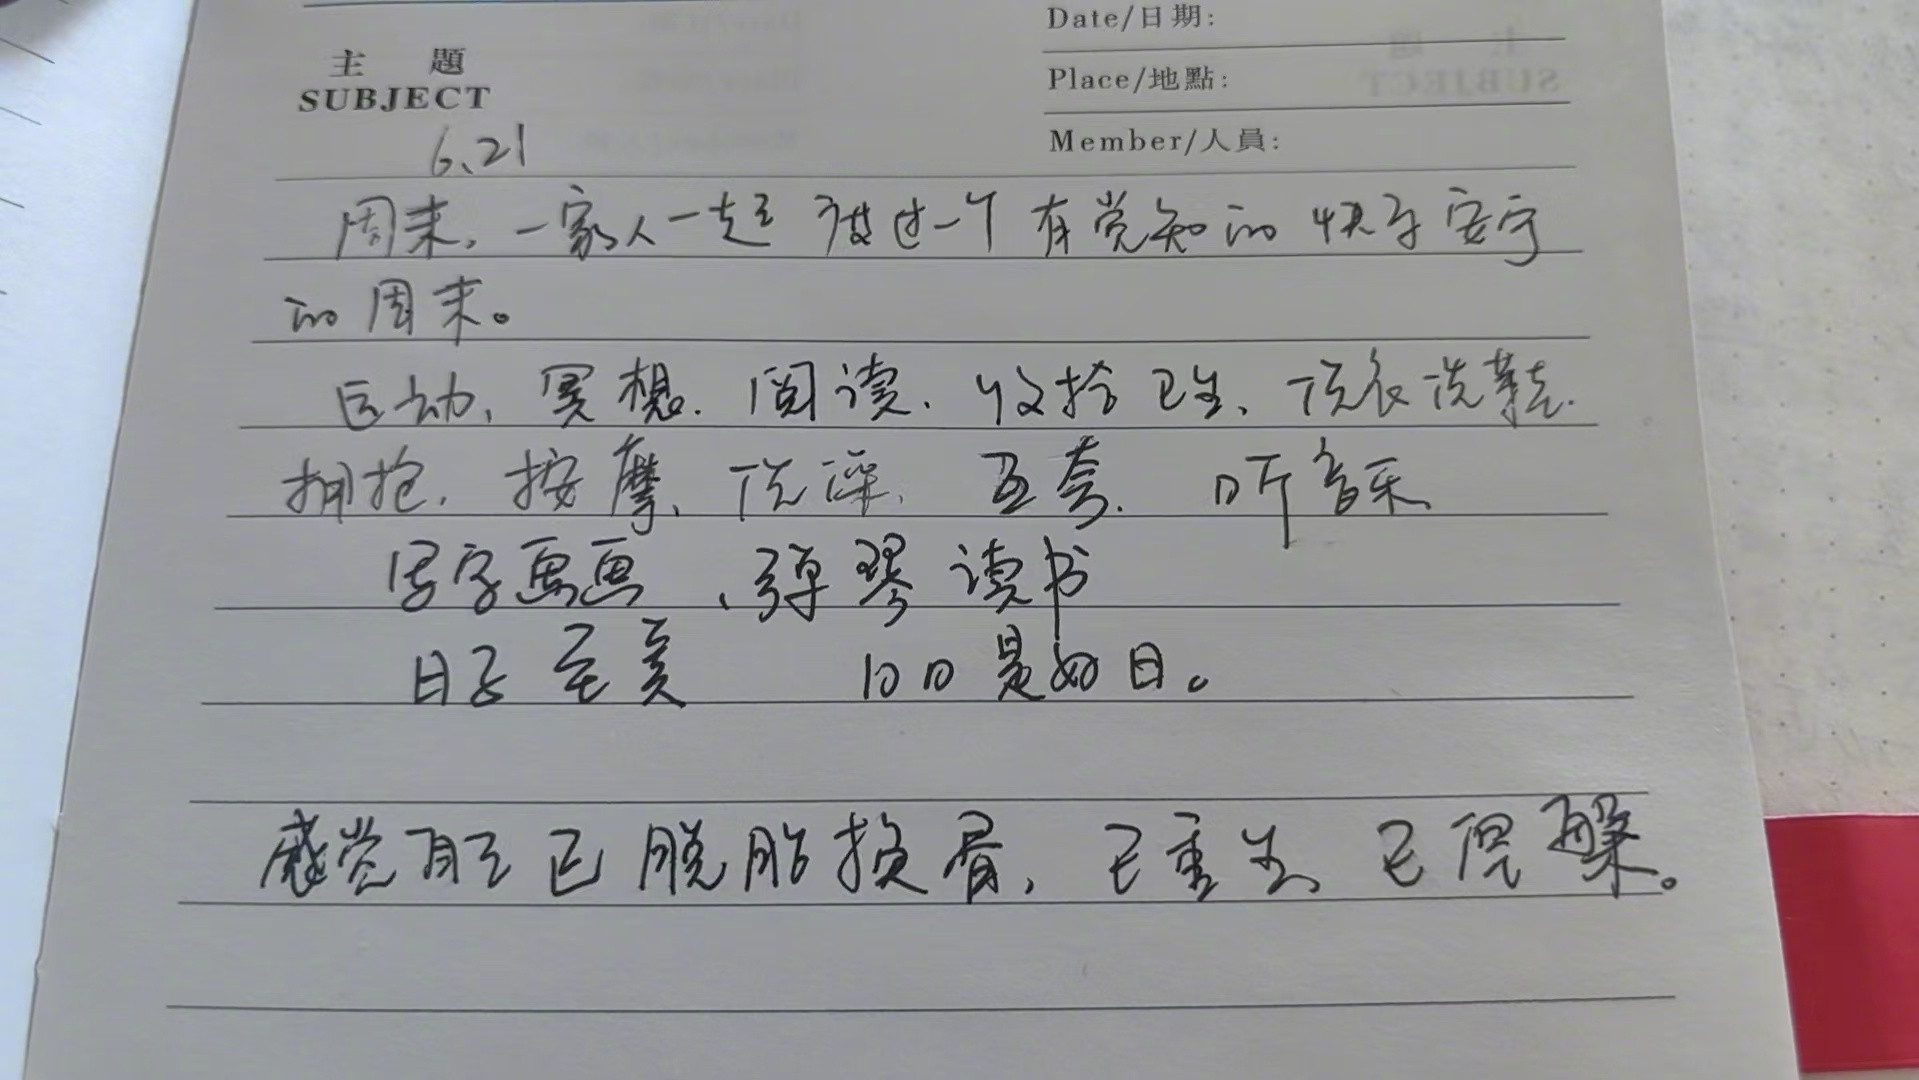 Date/日期:
主 題
SUBJECT
Place/地點:
Member/人員:
6.21
周末,一家人一起度过一个有觉知的快乐安宁
的周末。
运动、冥想.阅读.收拾卫生、洗衣洗鞋.
拥抱.按摩、洗澡、互夸.听音乐、
写字画画、弹琴读书
日子至美 日日是好日。
感觉自己已脱胎换骨,已重生、已涅槃。